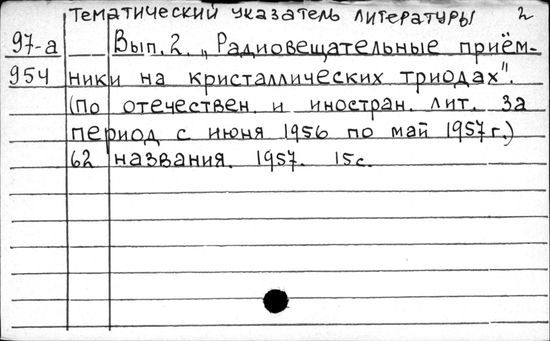 Тематический указатель литературы 2
97-а Вып. 2. „Радиовещательные приём-
954 ники на кристаллических триодах".
(По отечествен. и иностран. лит. за
период с июня 1956 по май 1957 г.)
62 названия. 1957. 15 с.